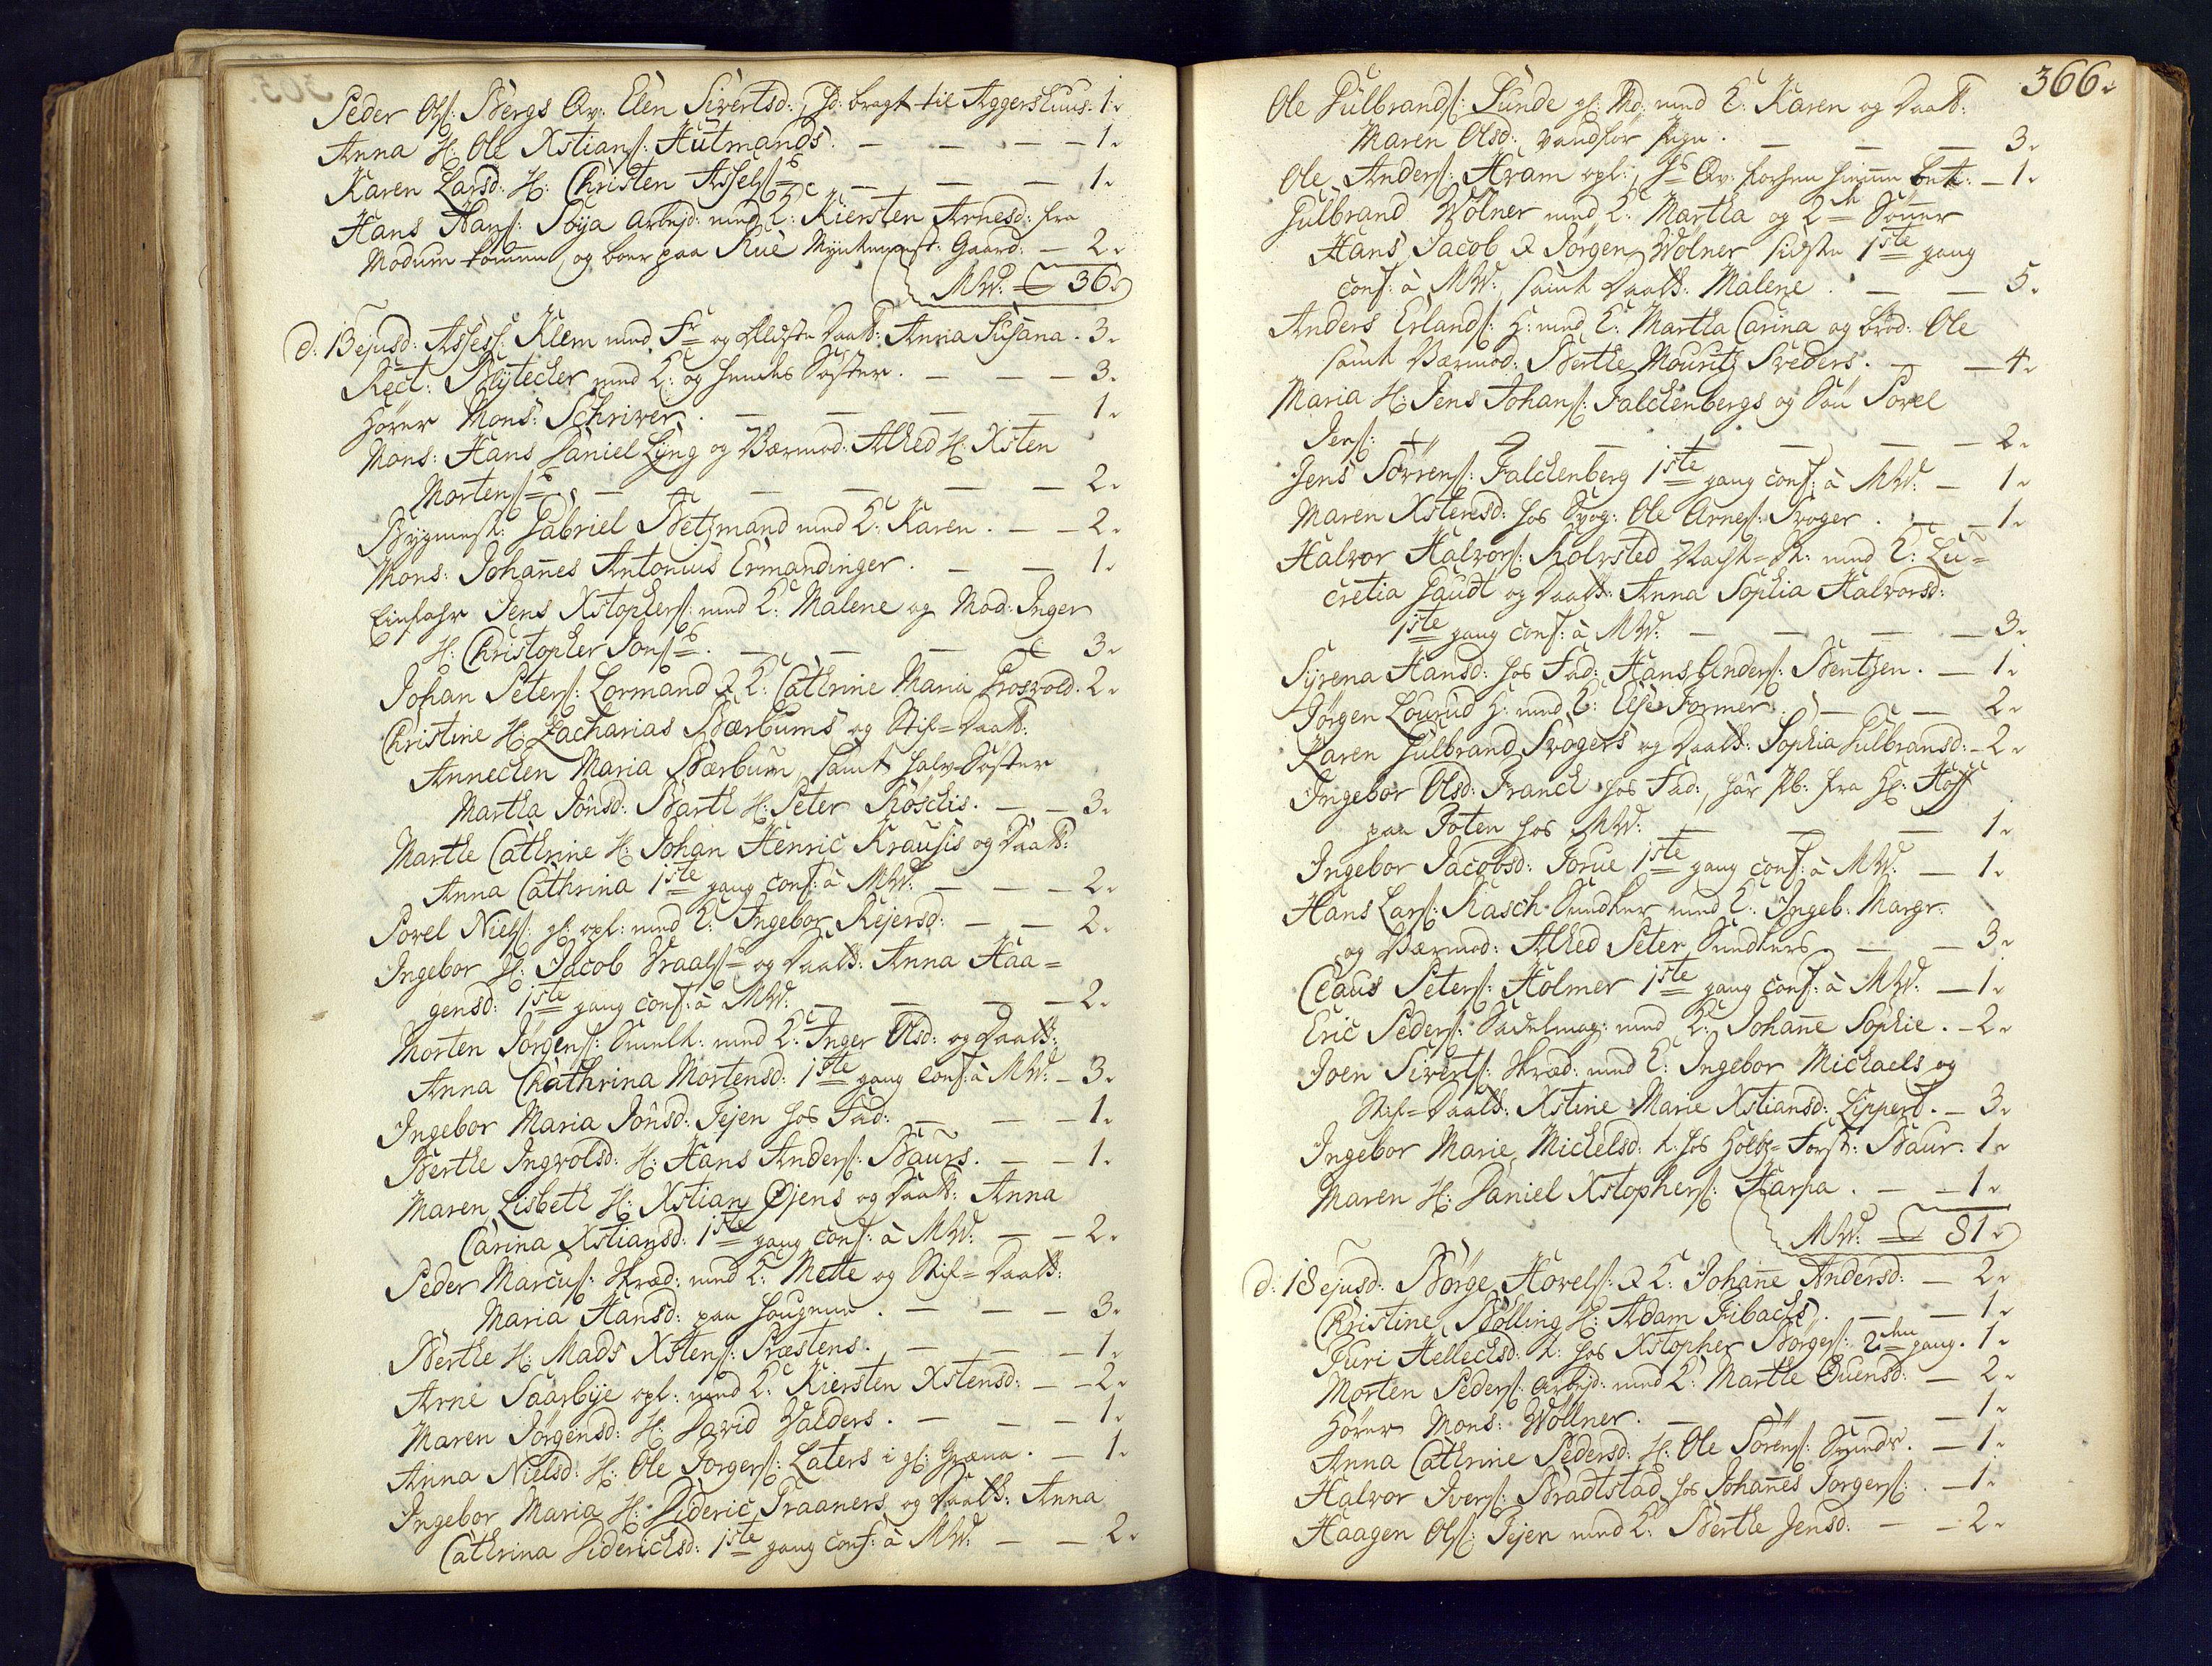 Peder Ols: Bergs Qv: Elen Sivertsd: , H: bragt til Aggershuus. 1.
Anna H: Ole Xstians: Hutmands. — — — 1.
Karen Larsd: H: Christen Assels:s — — — 1.
Hans Hans: Bøya arbejd: med K: Kiersten Arnesd: fra
Modum kommen, og boer paa Rue Myntemest: Gaard. — 2.
MW: = 36.
d. 13 ejusd: Assess: Klem med Fr og Ældste Daatt: Anna Susana. 3.
Rect: Blytecher med K: og hendes Søster. — — — 3.
Hører Mons: Schriver. — — — — 1.
Mons: Hans Daniel Lyng og Værmod: Alhed H: Xsten
Mortens:s — — — — — 2.
Bygmest: Gabriel Betzmand med K: Karen. — — 2.
Mons: Johañes Antonius Ermandinger. — — 1.
Einfahr Jens Xstophers: med K: Malene og Mod: Inger
H: Christopher Jons:s. — — — — 3.
Johan Peters: Lormand & K: Cathrine Maria Grosvold. 2.
Christine H: Zacharias Bærbums og Stif-Daatt:
Annechen Maria Bærbum, samt halv-Søster
Martha Jonsd: Barth H: Peter Røschis. — — 3.
Marthe Cathrine H: Johan Henric Krausis og Daatt:
Anna Cathrina 1ste gang conf: à MW: — — — 2.
Povel Niels: gl: opl: med K: Ingebor Rejersd: — — 2.
Ingebor H: Jacob Vraals:s og Daatt: Anna Haa-
gensd: 1ste gang conf: à MW: — — — — 2.
Morten Jørgens: Smelt: med K: Inger Olsd: og Daatt:
Anna Chathrina Mortensd: 1ste gang conf: à MW: — 3.
Ingebor Maria Jonsd: Tejen hos Fad: — — — 1.
Berthe Ingvolsd: H: Hans Anders: Baurs. — — 1.
Maren Lisbeth H: Xstian Øjens og Daatt: Anna
Carina Xstiansd: 1ste gang conf: à MW: — — 2.
Peder Marcus: Skræd: med K: Mette og Stif-Daatt:
Maria Hansd: paa Haugene. — — — 3.
Berthe H: Mads Xstens: Præstens. — — — 1.
Arne Saarbye opl: med K: Kiersten Xstensd: — — 2.
Maren Jørgensd: H: David Valders. — — — 1.
Anna Nielsd: H: Ole Torgers: Laters i gl: Græna. — 1.
Ingebor Maria H: Dideric Praaners og Daatt: Anna
Cathrina Diderichsd: 1ste gang conf: à MW: — — 2.
366.
Ole Gulbrands: Sunde gl: Md: med K: Karen og Daatt:
Maren Olsd: vandfør Pige. — — — 3.
Ole Anders: Hvam opl: , H:s Qv: forhen hiemme bet: — 1.
Gulbrand Wölner med K: Martha og 2de Søñer
Hans Jacob & Jørgen Wölner sidste 1ste gang
conf: à MW:, samt Daatt: Malene. — — 5.
Anders Erlands: H: med K: Martha Carina og brod: Ole
samt Værmod: Berthe Mouritz Sveders. — — 4.
Maria H: Jens Johans: Falchenbergs og Søn Povel
Jens: — — — — — 2.
Jens Sörrens: Falchenberg 1ste gang conf: à MW: — 1.
Maren Xstensd: hos Svog: Ole Arnes: Svoger. — — 1.
Halvor Halvors: Kolvsted Vagt-M: med K: Lu-
cretia Gaudt og Daatt: Anna Sophia Halvorsd:
1ste gang conf: à MW: — — — — 3.
Syrena Hansd: hos Fad: Hans Anders: Bentzen. — 1.
Jørgen Lourud H: med K: Else Former. — — 2.
Karen Gulbrand Svogers og Daatt: Sophia Gulbransd: — 2.
Ingebor Olsd: Franck hos Fad: , har Sb: fra H: Hoff
paa Toten hos MW: — — — 1.
Ingebor Jacobsd: Torue 1ste gang conf: à MW: — 1.
Hans Lars: Rasch Snedker med K: Ingeb: Margr:
og Værmod: Alhed Peter Snedkers — — 3.
Claus Peters: Holmer 1ste gang conf: à MW: — 1.
Eric Peders: Sadelmag: med K: Johañe Sophie. — 2.
Joen Siverts: Skræd: med K: Ingebor Michaels og
Stif-Daatt: Xstine Marie Xstiansd: Lippert. — 3.
Ingebor Marie Michelsd: t: hos Holtz-Først: Baur. 1.
Maren H: Daniel Xstophers: Harpa. — — 1.
MW: = 81.
d. 18 ejusd: Børge Hovels: & K: Johañe Andersd: — 2.
Christine Bölling H: Adam Fibachs. — — 1.
Guri Hellechsd: t: hos Xstopher Børges: 2den gang. 1.
Morten Peders: arbejd: med K: Marthe Evensd: — 2.
Hører Mons: Wöllner. — — — — 1.
Anna Cathrine Pedersd: H: Ole Sörens: Svends. — 1.
Halvor Ivers: Bradtstad hos Johañes Torgers: . — 1.
Haagen Ols: Tejen med K: Berthe Jensd: — — 2.